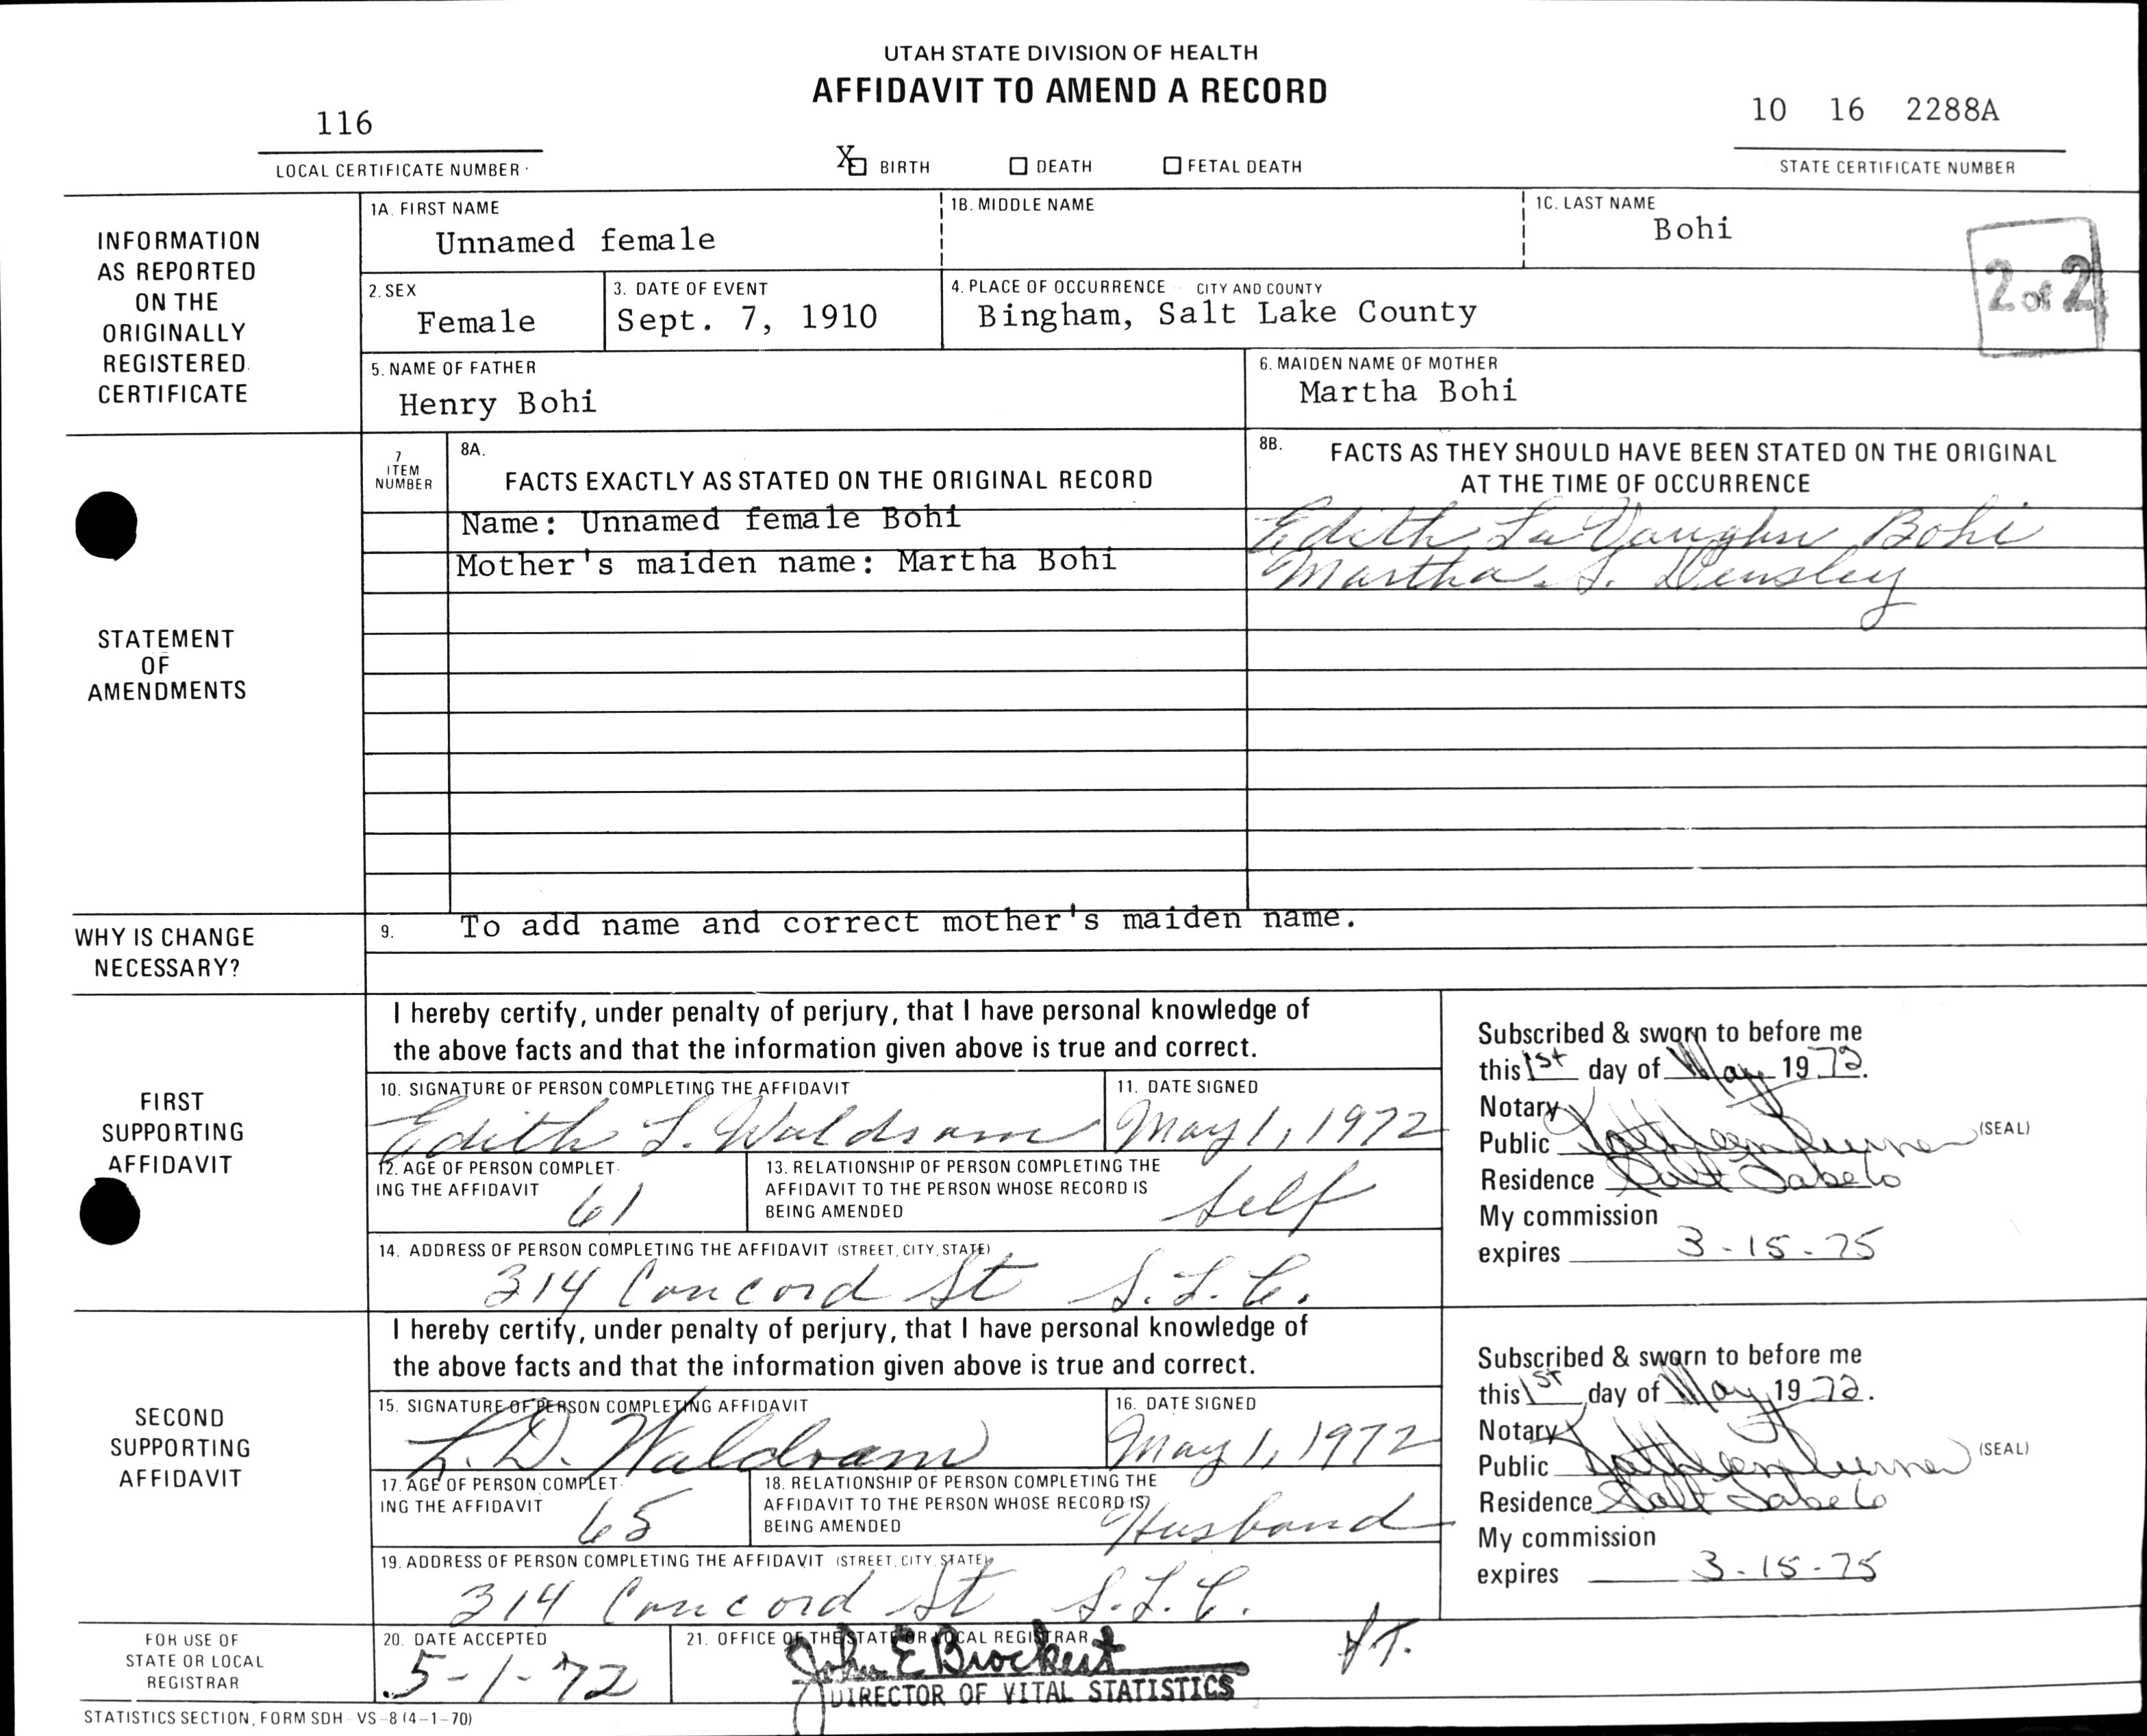 UTAH STATE DIVISION OF HEALTH
AFFIDAVIT TO AMEND A RECORD
116
LOCAL CERTIFICATE NUMBER
X BIRTH DEATH FETAL DEATH
10 16 2288A
STATE CERTIFICATE NUMBER
INFORMATION AS REPORTED ON THE ORIGINALLY REGISTERED CERTIFICATE
1A. FIRST NAME
Unnamed female
1B. MIDDLE NAME
1C. LAST NAME
Bohi
2 of 2
2. SEX
Female
3. DATE OF EVENT
Sept. 7, 1910
4. PLACE OF OCCURRENCE CITY AND COUNTY
Bingham, Salt Lake County
5. NAME OF FATHER
Henry Bohi
6. MAIDEN NAME OF MOTHER
Martha Bohi
STATEMENT OF AMENDMENTS
7 ITEM NUMBER
8A.
FACTS EXACTLY AS STATED ON THE ORIGINAL RECORD
8B. FACTS AS THEY SHOULD HAVE BEEN STATED ON THE ORIGINAL
AT THE TIME OF OCCURRENCE
Name: Unnamed female Bohi
Edith La Vaughn Bohi
Mother's maiden name: Martha Bohi
Martha S. Densley
WHY IS CHANGE NECESSARY?
9. To add name and correct mother's maiden name.
FIRST SUPPORTING AFFIDAVIT
I hereby certify, under penalty of perjury, that I have personal knowledge of
the above facts and that the information given above is true and correct.
10. SIGNATURE OF PERSON COMPLETING THE AFFIDAVIT
Edith L. Waldram
11. DATE SIGNED
May 1, 1972
12. AGE OF PERSON COMPLET-
ING THE AFFIDAVIT
61
13. RELATIONSHIP OF PERSON COMPLETING THE
AFFIDAVIT TO THE PERSON WHOSE RECORD IS
BEING AMENDED
Self
14. ADDRESS OF PERSON COMPLETING THE AFFIDAVIT (STREET, CITY, STATE)
314 Concord St S.L.C.
Subscribed & sworn to before me
this 1st day of May 1972.
Notary
Public Kathleen (SEAL)
Residence Salt Lake Co
My commission
expires 3-15-75
SECOND SUPPORTING AFFIDAVIT
I hereby certify, under penalty of perjury, that I have personal knowledge of
the above facts and that the information given above is true and correct.
15. SIGNATURE OF PERSON COMPLETING AFFIDAVIT
L. D. Waldram
16. DATE SIGNED
May 1, 1972
17. AGE OF PERSON COMPLET-
ING THE AFFIDAVIT
65
18. RELATIONSHIP OF PERSON COMPLETING THE
AFFIDAVIT TO THE PERSON WHOSE RECORD IS
BEING AMENDED
Husband
19. ADDRESS OF PERSON COMPLETING THE AFFIDAVIT (STREET, CITY, STATE)
314 Concord St S.L.C.
Subscribed & sworn to before me
this 1ST day of May, 1972.
Notary
Public Kathleen (SEAL)
Residence Salt Lake Co
My commission
expires 3-15-75
FOR USE OF STATE OR LOCAL REGISTRAR
20. DATE ACCEPTED
5-1-72
21. OFFICE OF THE STATE OR LOCAL REGISTRAR
John E Brockert
DIRECTOR OF VITAL STATISTICS
STATISTICS SECTION, FORM SDH - VS-8 (4-1-70)